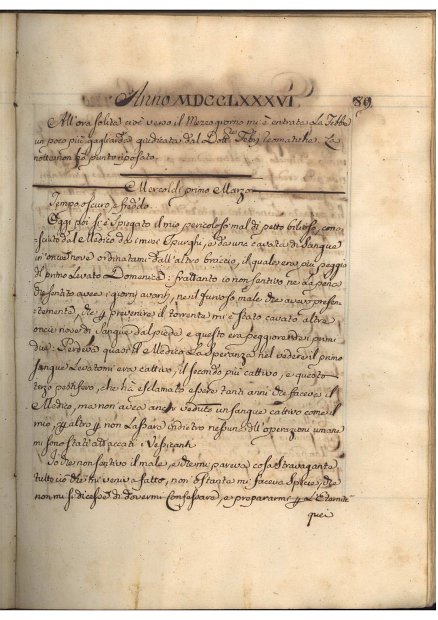 Anno MDCCLXXXVI. 89
All'ora solita cioè verso il Mezzogiorno mi è entrata la Febbre
un poco più gagliarda giudicata dal Dott.re
notte non ho punto riposato.
Mercoldi primo Marzo
Tempo oscuro e freddo.
Oggi poi si è spiegato il mio pericoloso mal di petto bilioso, cono-
sciuto dal Medico da i miei Spurghi, e da una cavata di Sangue
in oncie nove ordinatami dall'altro braccio, il quale era più peggio
del primo levato Domenica: frattanto io non sentivo ne la pena
sentito avere i giorni avanti, ne il furioso male che avevo presen-
temente, che p prevenire il torrente mi è stato cavato altre
oncie nove di Sangue dal piede e questo era peggiore de primi
due: Perdeva quasi il Medico la Speranza nel vedere il primo
Sangue levatomi era cattivo, il secondo più cattivo, e questo
terzo pestifero, che hà esclamato essere tanti anni che faceva il
Medico, ma non avea ancor veduto un sangue cattivo come il
mio, p altro p non lasciare indietro nessuna dell'operazioni umane
mi sono stati attaccati i Vessicanti.
Io che non sentivo il male, e che mi pareva cosa stravagante
tutto ciò che mi veniva fatto, non ostante mi faceva specie, che
non mi si dicesse di dovermi Confessare, e prepararmi p l'Eternità
quei